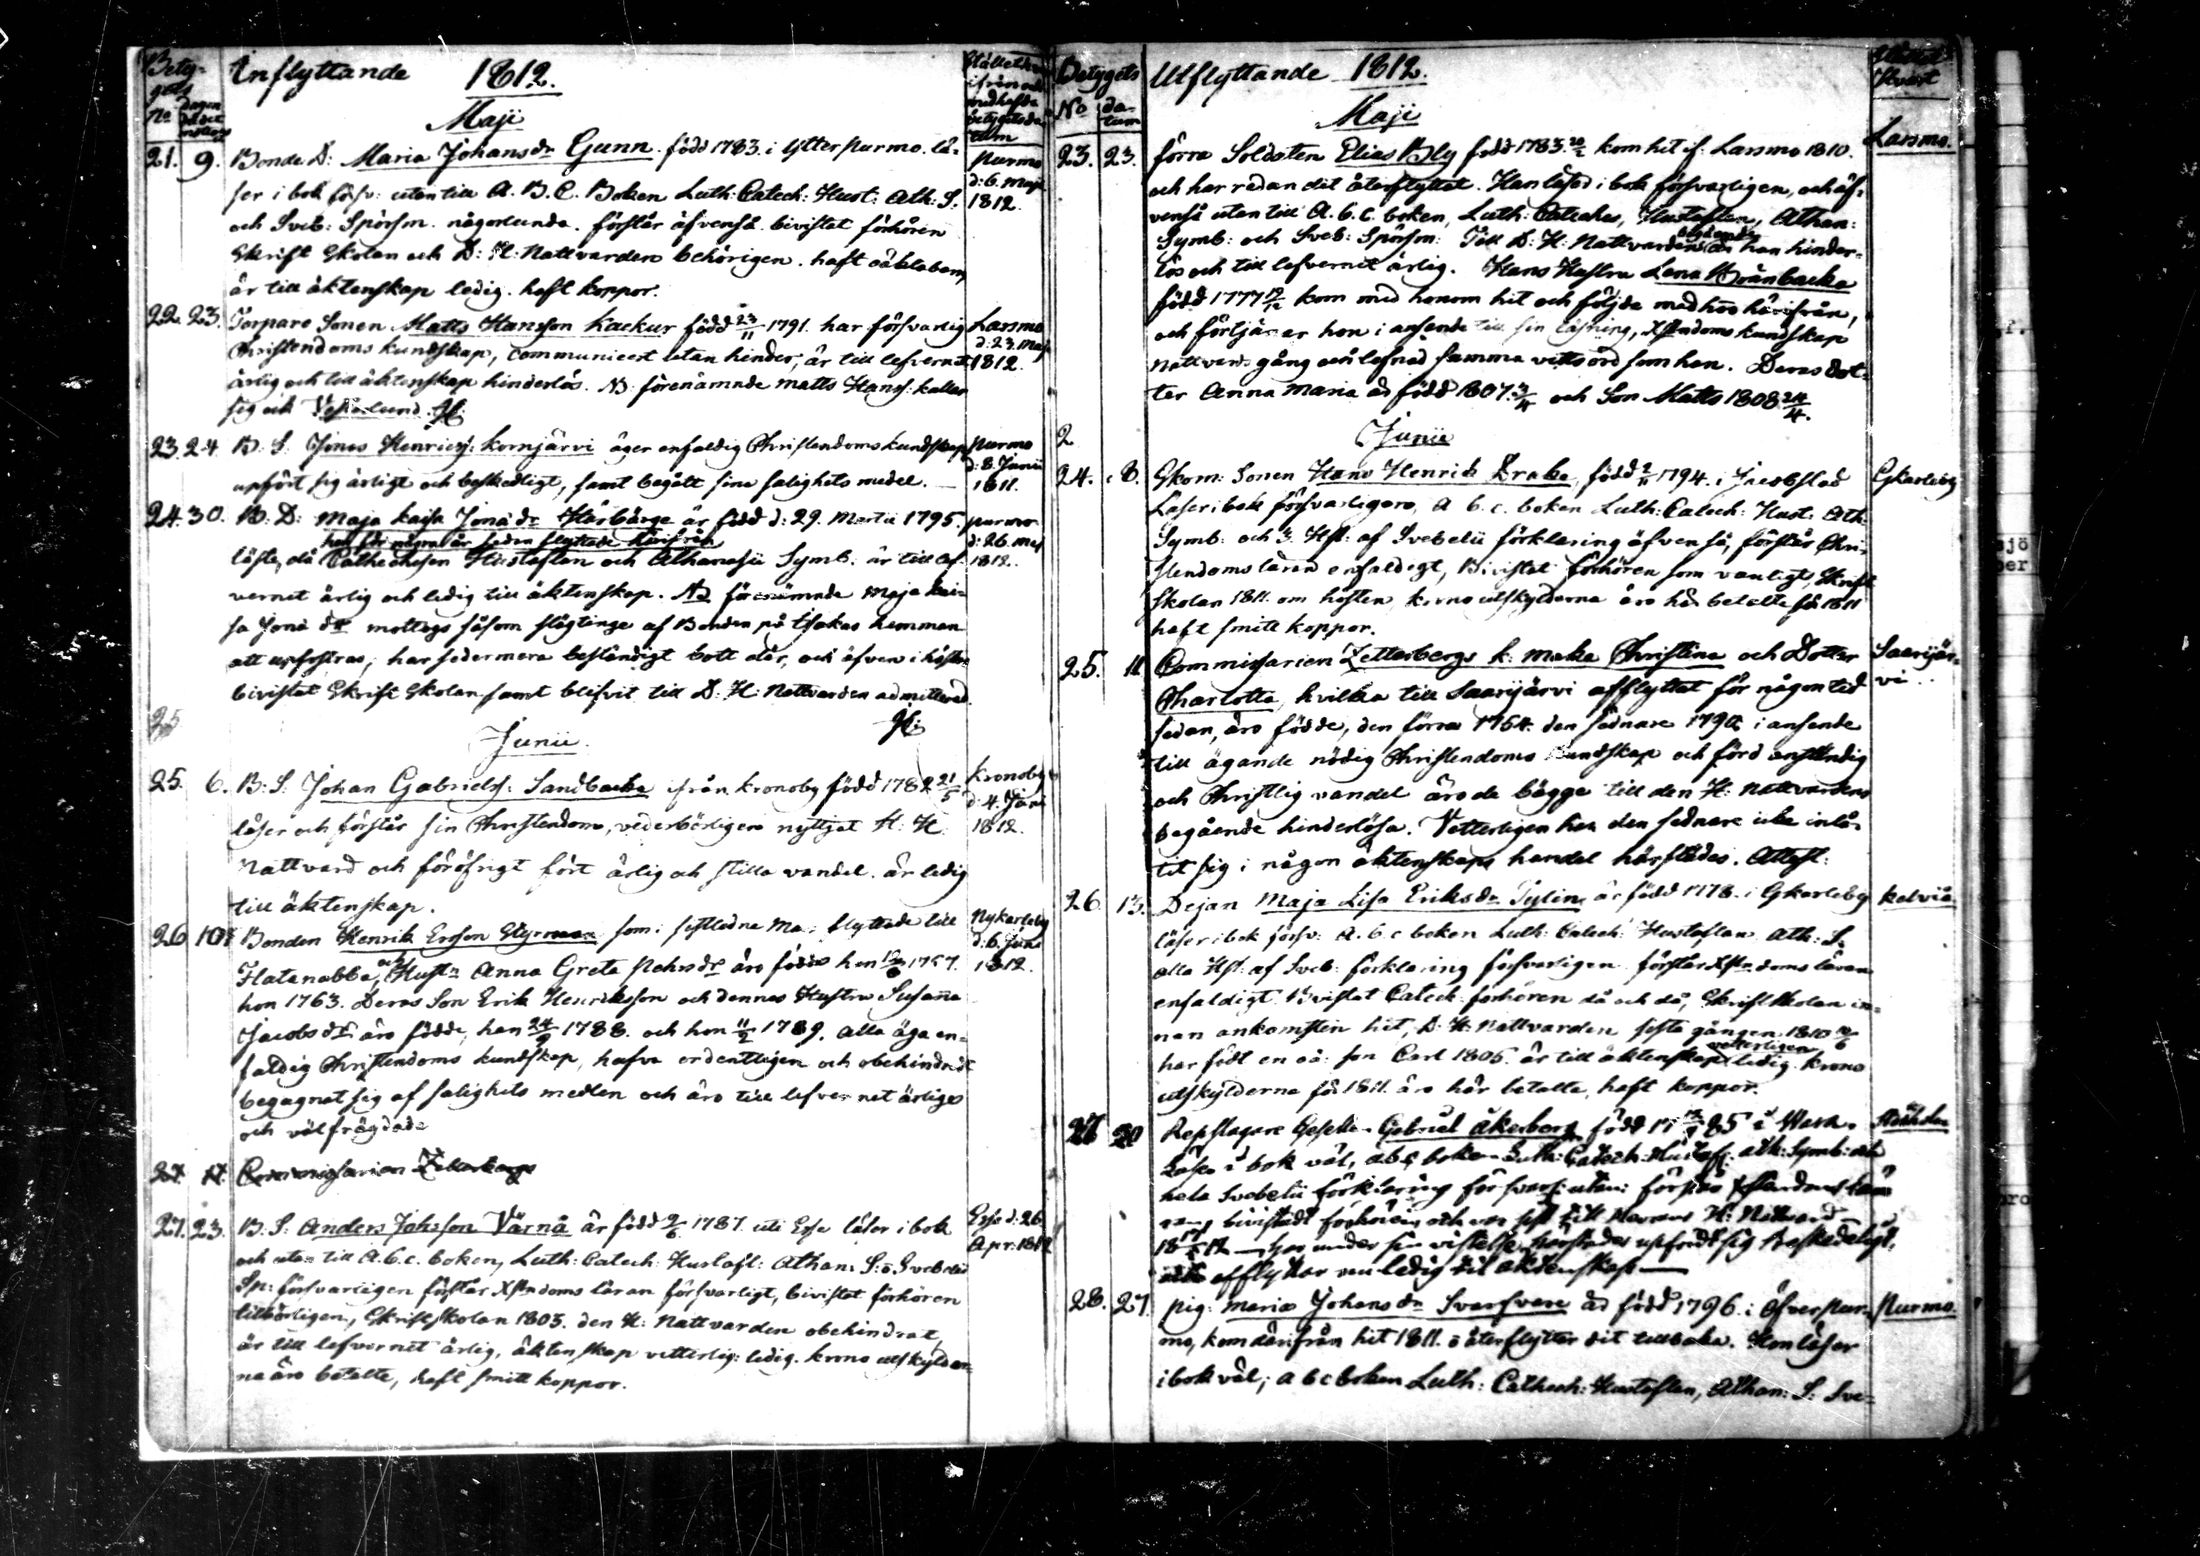 Bety-
gets
No
dagen
då det
mottogs
Inflyttande 1812.
Stället hvar
ifrån och
medhafde
betygets da
tum
Maji
21. 9. Bonde D: Maria Johansdr Gunn. född 1783. i Ytterpurmo. lä-
Purmo
d: 6. Maji
1812.
ser i bok försv: utan till A. B. C. Boken Luth: Catech: Hust: Ath: S.
och Sveb: Spörsm. någorlunda. förstår äfvenså. bivistat förhören
Skrift Skolan och D: H: Nattvarden behörigen. haft oäkta barn,
är till äktenskap ledig. haft koppor.
22. 23. Torpare Sonen Matts Hansson Kackur född 23/11 1791. har försvarlig
Larsmo
d: 23. Maji
1812.
Christendoms kundskap, communicert utan hinder, är till lefvernet
ärlig och till äktenskap hinderlös. NB. förenämnde Matts Hanss: kallar
sig och Vesterlund.
23. 24. B. S. Jonas Henricss: Kornjärvi äger enfaldig Christendoms kundskap
Purmo
d: 8. Junii
1811.
upfört sig ärligt och beskedligt, samt begått sina salighets medel. —
24. 30. B: D: Maja Kaisa Jonædr Härbärge är född d: 29. Martii 1795.
purmo
d: 26. Maj
1812.
hon för några år sedan flyttade härifrån
läste, då Cathechesen Hustaflan och Athanasii Symb. är till lef-
vernet ärlig och ledig till äktenskap. NB förenämnde Maja Kai-
sa Jonædr mottogs såsom slägtinge af Bonden på hemman
att upfostras, har sedermera beständigt bott där, och äfven i höstas
bivistat Skrift Skolan samt blifvit till D. H: Nattvarden admitterad.
25
Junii.
25. 6. B: S: Johan Gabrielss: Sandbacka ifrån Kronoby född 1782 21/5
Kronoby
d: 4. Juni
1812.
läser och förstår sin Christendom, vederbörligen nyttjat H: H.
Nattvard och föröfrigt fört ärlig och stilla vandel. är ledig
till äktenskap.
26. 10. Bonden Henrik Ersson Styrman som i sistledne Maj flyttade till
Nykarleby
d: 6. Juni
1812.
Flatanabba, och Hustr: Anna Greta Pehrsdr äro födde han 1757.
hon 1763. Deras Son Erik Henriksson och dennes Hustru Susanna
Jacobsdr äro födde, han 24/9 1788. och hon 11/2 1789. alla äga en-
faldig Christendoms kundskap, hafva ordentligen och obehindradt
begagnat sig af salighets medlen och äro till lefvernet ärlige
och välfrägdade
27. 17. Commissarien Zetterbergs
27. 23. B: S: Anders Johsson Värnå är född 9/6 1787. uti Esse läser i bok
Esse d: 26
Apr: 1812
och utan till A. b. c. boken, Luth: Catech: Hustafl: Athan: S: o: Svebelii
Sp: försvarligen förstår Xstndoms läran försvarligt, bivistat förhören
tillbörligen, Skriftskolan 1803. den H: Nattvarden obehindrat,
är till lefvernet ärlig, äktenskap vitterlig: ledig. krono utskylder-
na äro betalte, haft smittkoppor.
Betygets
No da-
tum
Utflyttande 1812.
Stället
Hvart
Maji
23. 23. förra Soldaten Elias Bly född 1783. 20/2 kom hit if: Larsmo 1810.
Larsmo.
och har redan dit återflyttat. Han läser i bok försvarligen, och äf-
venså utan till A. b. c. boken, Luth: Cateches, Hustaflan, Athan:
Symb: och Sveb: Spörsm: Till D: H: Nattvardens begående är han hinder-
lös och till lefvernet ärlig. Hans Hustru Lena Bränbacka
född 1777 kom med honom hit och följde med hos härifrån,
och förtjänar hon i anseende till sin läsning, Xstndoms kundskap
Nattvards gång och lefnad samma vittsörd som han. Deras dot-
ter Anna Maria är född 1807. 3/4 och Son Matts 1808 24/4.
2
Junii
24. 8. Skom: Sonen Hans Henrik Drake, född 1794. i Jacobstad
Gkarleby
Läser i bok försvarligare, A b. c. boken Luth: Catech: Hust: Ath:
Symb: och 3 Hst: af Svebelii förklaring äfvenså, förstår Chri-
stendoms läran enfaldigt, Bivistat förhören som vanligt, Skrift
skolan 1811. om hösten, krono utskylderna äro här betalte för 1811
haft smitt koppor.
25. 11. Commissarien Zetterbergs k: maka Christina och Dotter
Saarijär-
vi.
Charlotta, hvilka till Saarijärvi afflyttat för någon tid
sedan, äro födde, den förra 1764. den sednare 1792 i anseende
till ägande nödig Christendoms kundskap och förd anständig
och Christlig vandel äro de bägge till den H: Nattvardens
begående hinderlösa. Vetterligen har den sednare icke inlå-
tit sig i någon äktenskaps handel härstädes. Attest:
26. 13. Dejan Maja Lisa Eriksdr Tylin är född 1778. i Gkarleby
Kelviå
läser i bok försv: A. b c boken Luth: Catech: Hustaflan Ath: S.
alla Hst: af Sveb: förklaring försvarligen förstår Xstndoms läran
enfaldigt. Bivistat Catech: förhören då och då, Skriftskolan in-
nan ankomsten hit, D: H: Nattvarden sista gången 1810
har födt en oä: son Carl 1806. är till äktenskap vetterligen ledig. krono
utskylderna för 1811. äro här betalte, haft koppor.
27. 20 Repslagare Gesellen Gabriel Åkerberg född 1785 i Wasa.
Läser i bok väl, abc boken Luth: Catech: Hustafl: ath: Symb: och
hela Svebelii förklaring försvarl: utan: förstår Xstendoms lär-
an, bivistadt förhören och var sist till Herrans H: Nattvard
1812 — har under sin vistelse härstädes upfördt sig Beskedeligt,
och afflyttar nu ledig til äktenskap —
28. 27. pig: Maria Johansdr Svarfvare är född 1796. i Öfverpur-
Purmo.
mo, kom därifrån hit 1811. o återflyttar dit tillbaka. Hon läser
i bok väl, a b c boken Luth: Cathech: Hustaflan, Athan: S: Sve-